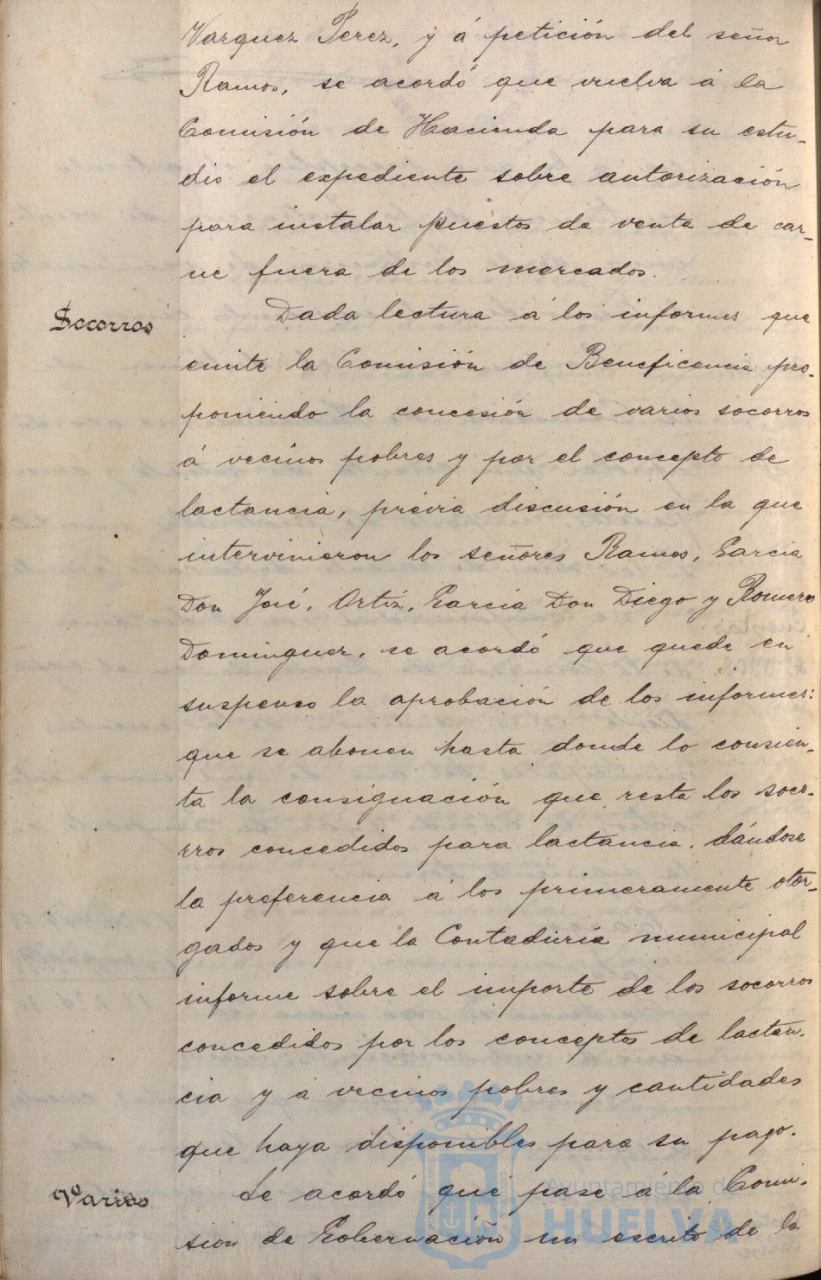 Vazquez Perez, y á petición del señor
Ramos, se acordó que vuelva á la
Comisión de Hacienda para su estu-
dio el expediente sobre autorización
para instalar puestos de venta de car-
ne fuera de los mercados.
Socorros
Dada lectura á los informes que
emite la Comisión de Beneficencia pro-
poniendo la concesión de varios socorros
á vecinos pobres y por el concepto de
lactancia, prévia discusión en la que
intervinieron los señores Ramos, García
Don José, Ortiz, García Don Diego y Romero
Dominguez, se acordó que quede en
suspenso la aprobación de los informes:
que se abonen hasta donde lo consien-
ta la consignación que resta los soco-
rros concedidos para lactancia, dándose
la preferencia á los primeramente otor-
gados y que la Contaduría municipal
informe sobre el importe de los socorros
concedidos por los conceptos de lactan-
cia y á vecinos pobres y cantidades
que haya disponibles para su pago.
Varios
Se acordó que pase á la Comi-
sion de Gobernación un escrito de la
Ayuntamiento de
HUELVA